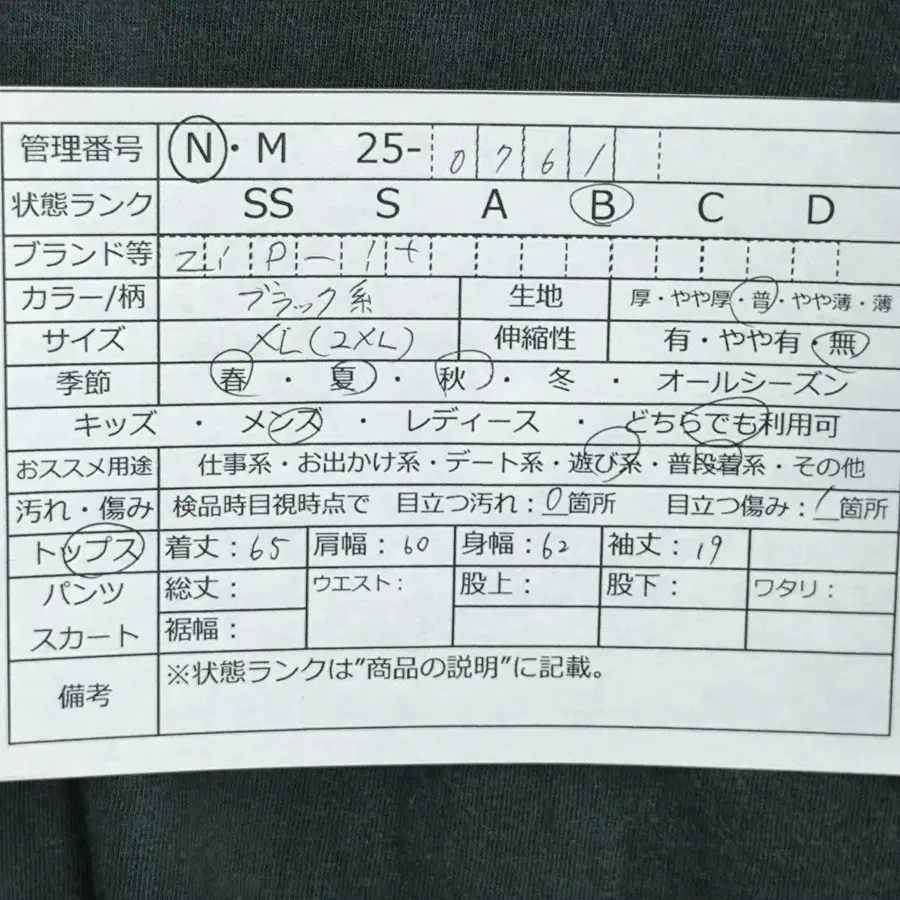 管理番号 N・M 25-0761
状態ランク SS S A B C D
ブランド等 ZiP-It
カラー/柄 ブラック系 生地 厚・やや厚・普・やや薄・薄
サイズ XL(2XL) 伸縮性 有・やや有・無
季節 春・夏・秋・冬・オールシーズン
キッズ・メンズ・レディース・どちらでも利用可
おススメ用途 仕事系・お出かけ系・デート系・遊び系・普段着系・その他
汚れ・傷み 検品時目視時点で 目立つ汚れ:0箇所 目立つ傷み:1箇所
トップス 着丈:65 肩幅:60 身幅:62 袖丈:19
パンツ 総丈: ウエスト: 股上: 股下: ワタリ:
スカート 裾幅:
備考 ※状態ランクは"商品の説明"に記載。